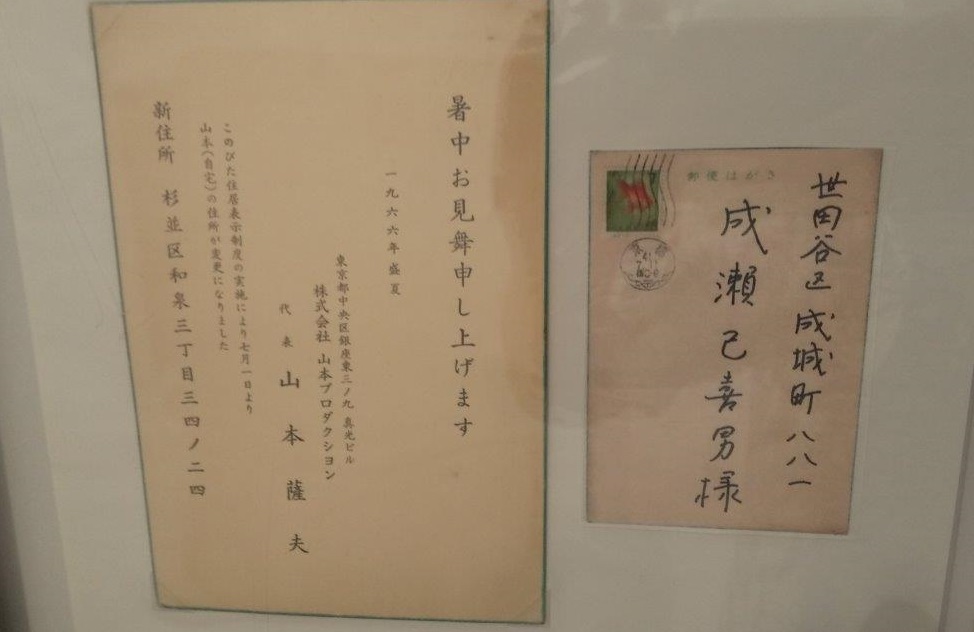 暑中お見舞申し上げます
一九六六年盛夏
東京都中央区銀座東三ノ九 真光ビル
株式会社 山本プロダクション
代表 山本薩夫
このびた住居表示制度の実施により七月一日より
山本(自宅)の住所が変更になりました
新住所 杉並区和泉三丁目三四ノ二四
郵便はがき
世田谷区成城町八八一
成瀬己喜男様